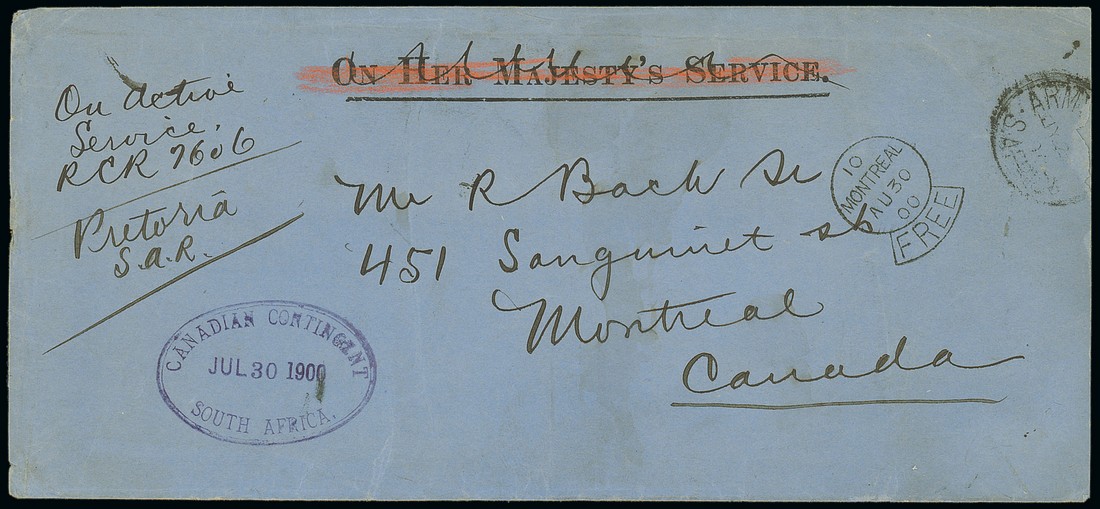 ON HER MAJESTY'S SERVICE.
On Active
Service,
RCR 7606
Pretoria
S.A.R.
Mr R Bach Sr
451 Sanguinet st
Montreal
Canada
10
MONTREAL
AU 30
00
FREE
ARMY
CANADIAN CONTINGENT
JUL 30 1900
SOUTH AFRICA.